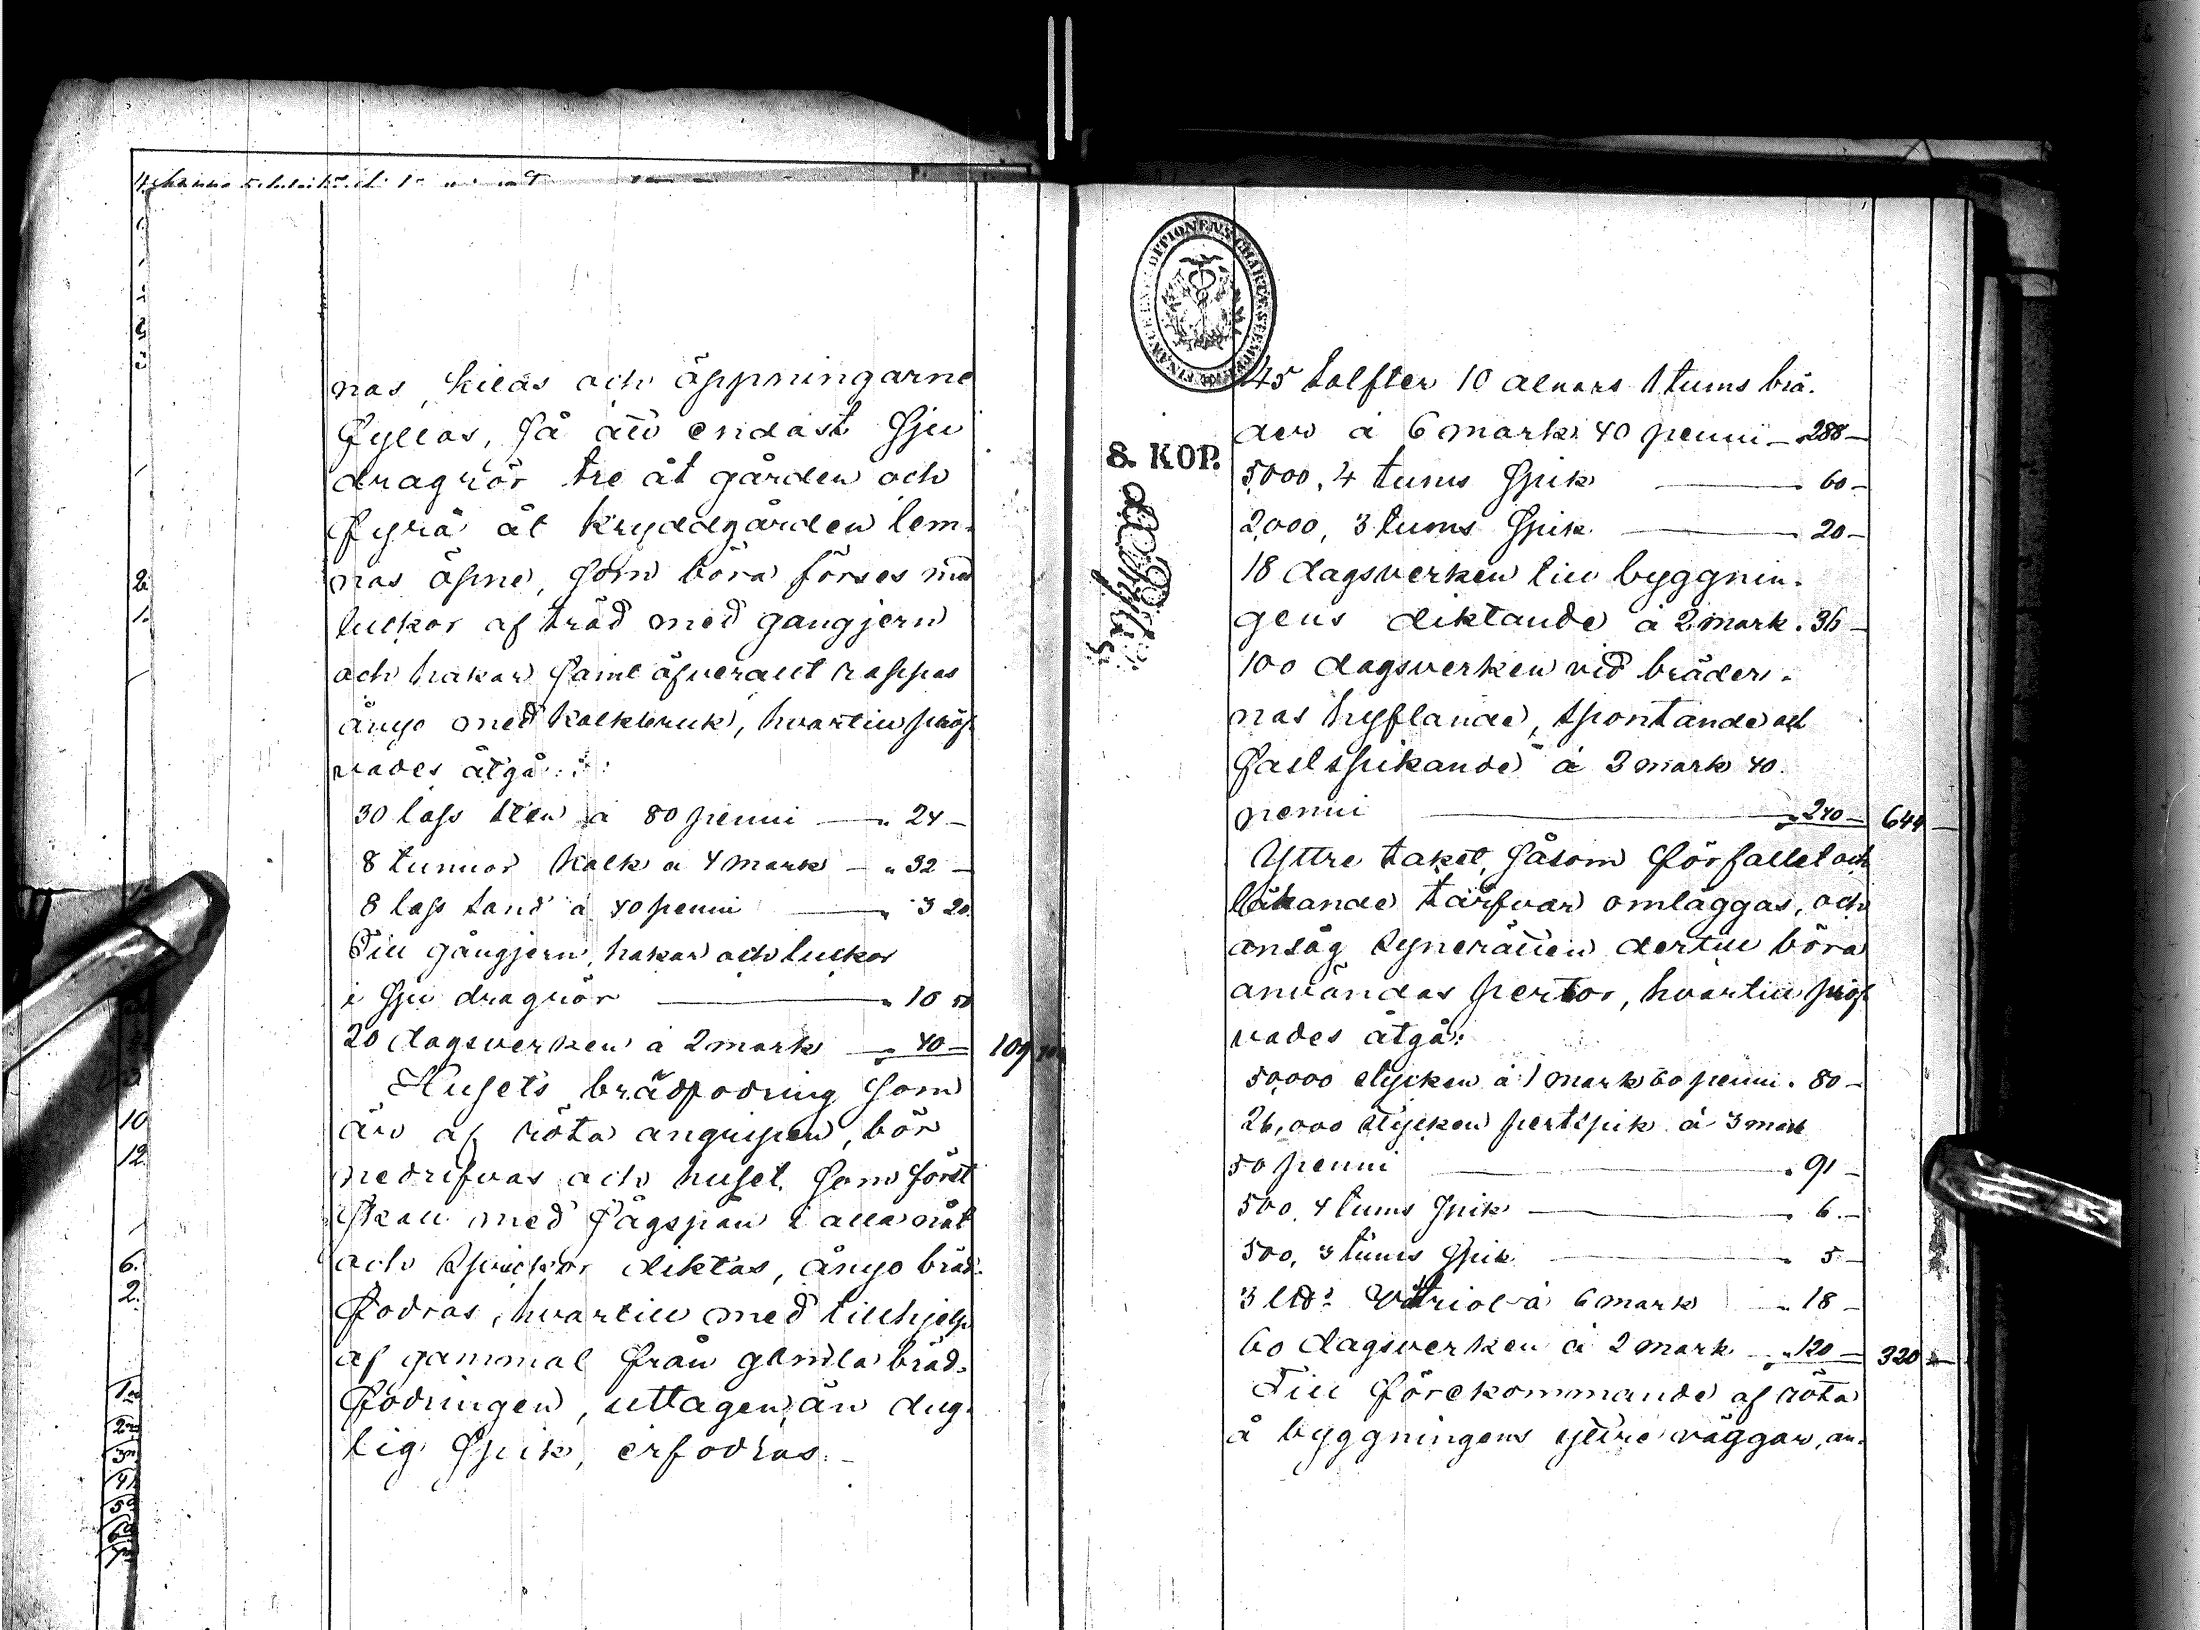 nas, kilas och öppningarne
fyllas, så att endast sju
dragrör tre åt gården och
fyra åt kryddgården lem-
nas öpne, som böra förses med
luckor af träd med gångjern
och hakar samt öfverallt rappas
ånyo med kalkbruk, hvartill pröf-
vades åtgå:
30 lass sten à 80 penni — „ 24 —
8 tunnor kalk a 4 mark — „ 32 —
8 lass sand a 40 penni — „ 3 20.
Till gångjern, hakar och luckor
i sju dragrör — „ 10 50
20 dagsverken à 2 mark — „ 40 — 109
Husets brädfodring som
är af röta angripen, bör
nedrifvas och huset som först
skall med sågspån i alla nåt
och sprickor diktas, ånyo bräd-
fodras, hvartill med tillhjelp
af gammal från gamla bräd-
fodringen, uttagen, än dug-
lig spik, erfodras. —
10
12.
6.
2.
8. KOP.
45 tolfter 10 alnars 1 tums brä-
der à 6 mark 40 penni — „ 288 —
5000, 4 tums spik — „ 60 —
2,000, 3 tums spik — „ 20 —
18 dagsverken till byggnin-
gens diktande à 2 mark „ 36 —
100 dagsverken vid bräder-
nas hyflande, spontande och
fastspikande à 2 mark 40
penni — „ 240 — 644 —
Yttre taket, såsom förfallet och
läkande tarfvar omläggas, och
ansåg synerätten dertill böra
användas pertor, hvartill pröf-
vades åtgå:
50,000 stycken à 1 mark 60 penni „ 80 —
26,000 stycken pertspik à 3 mark
50 penni — „ 91 —
500, 4 tums spik — „ 6. —
500, 3 tums spik — „ 5 —
3 lld: Vitriol à 6 mark „ 18 —
60 dagsverken à 2 mark „ 120 — 320 —
Till förekommande af röta
å byggningens yttre väggar, an-